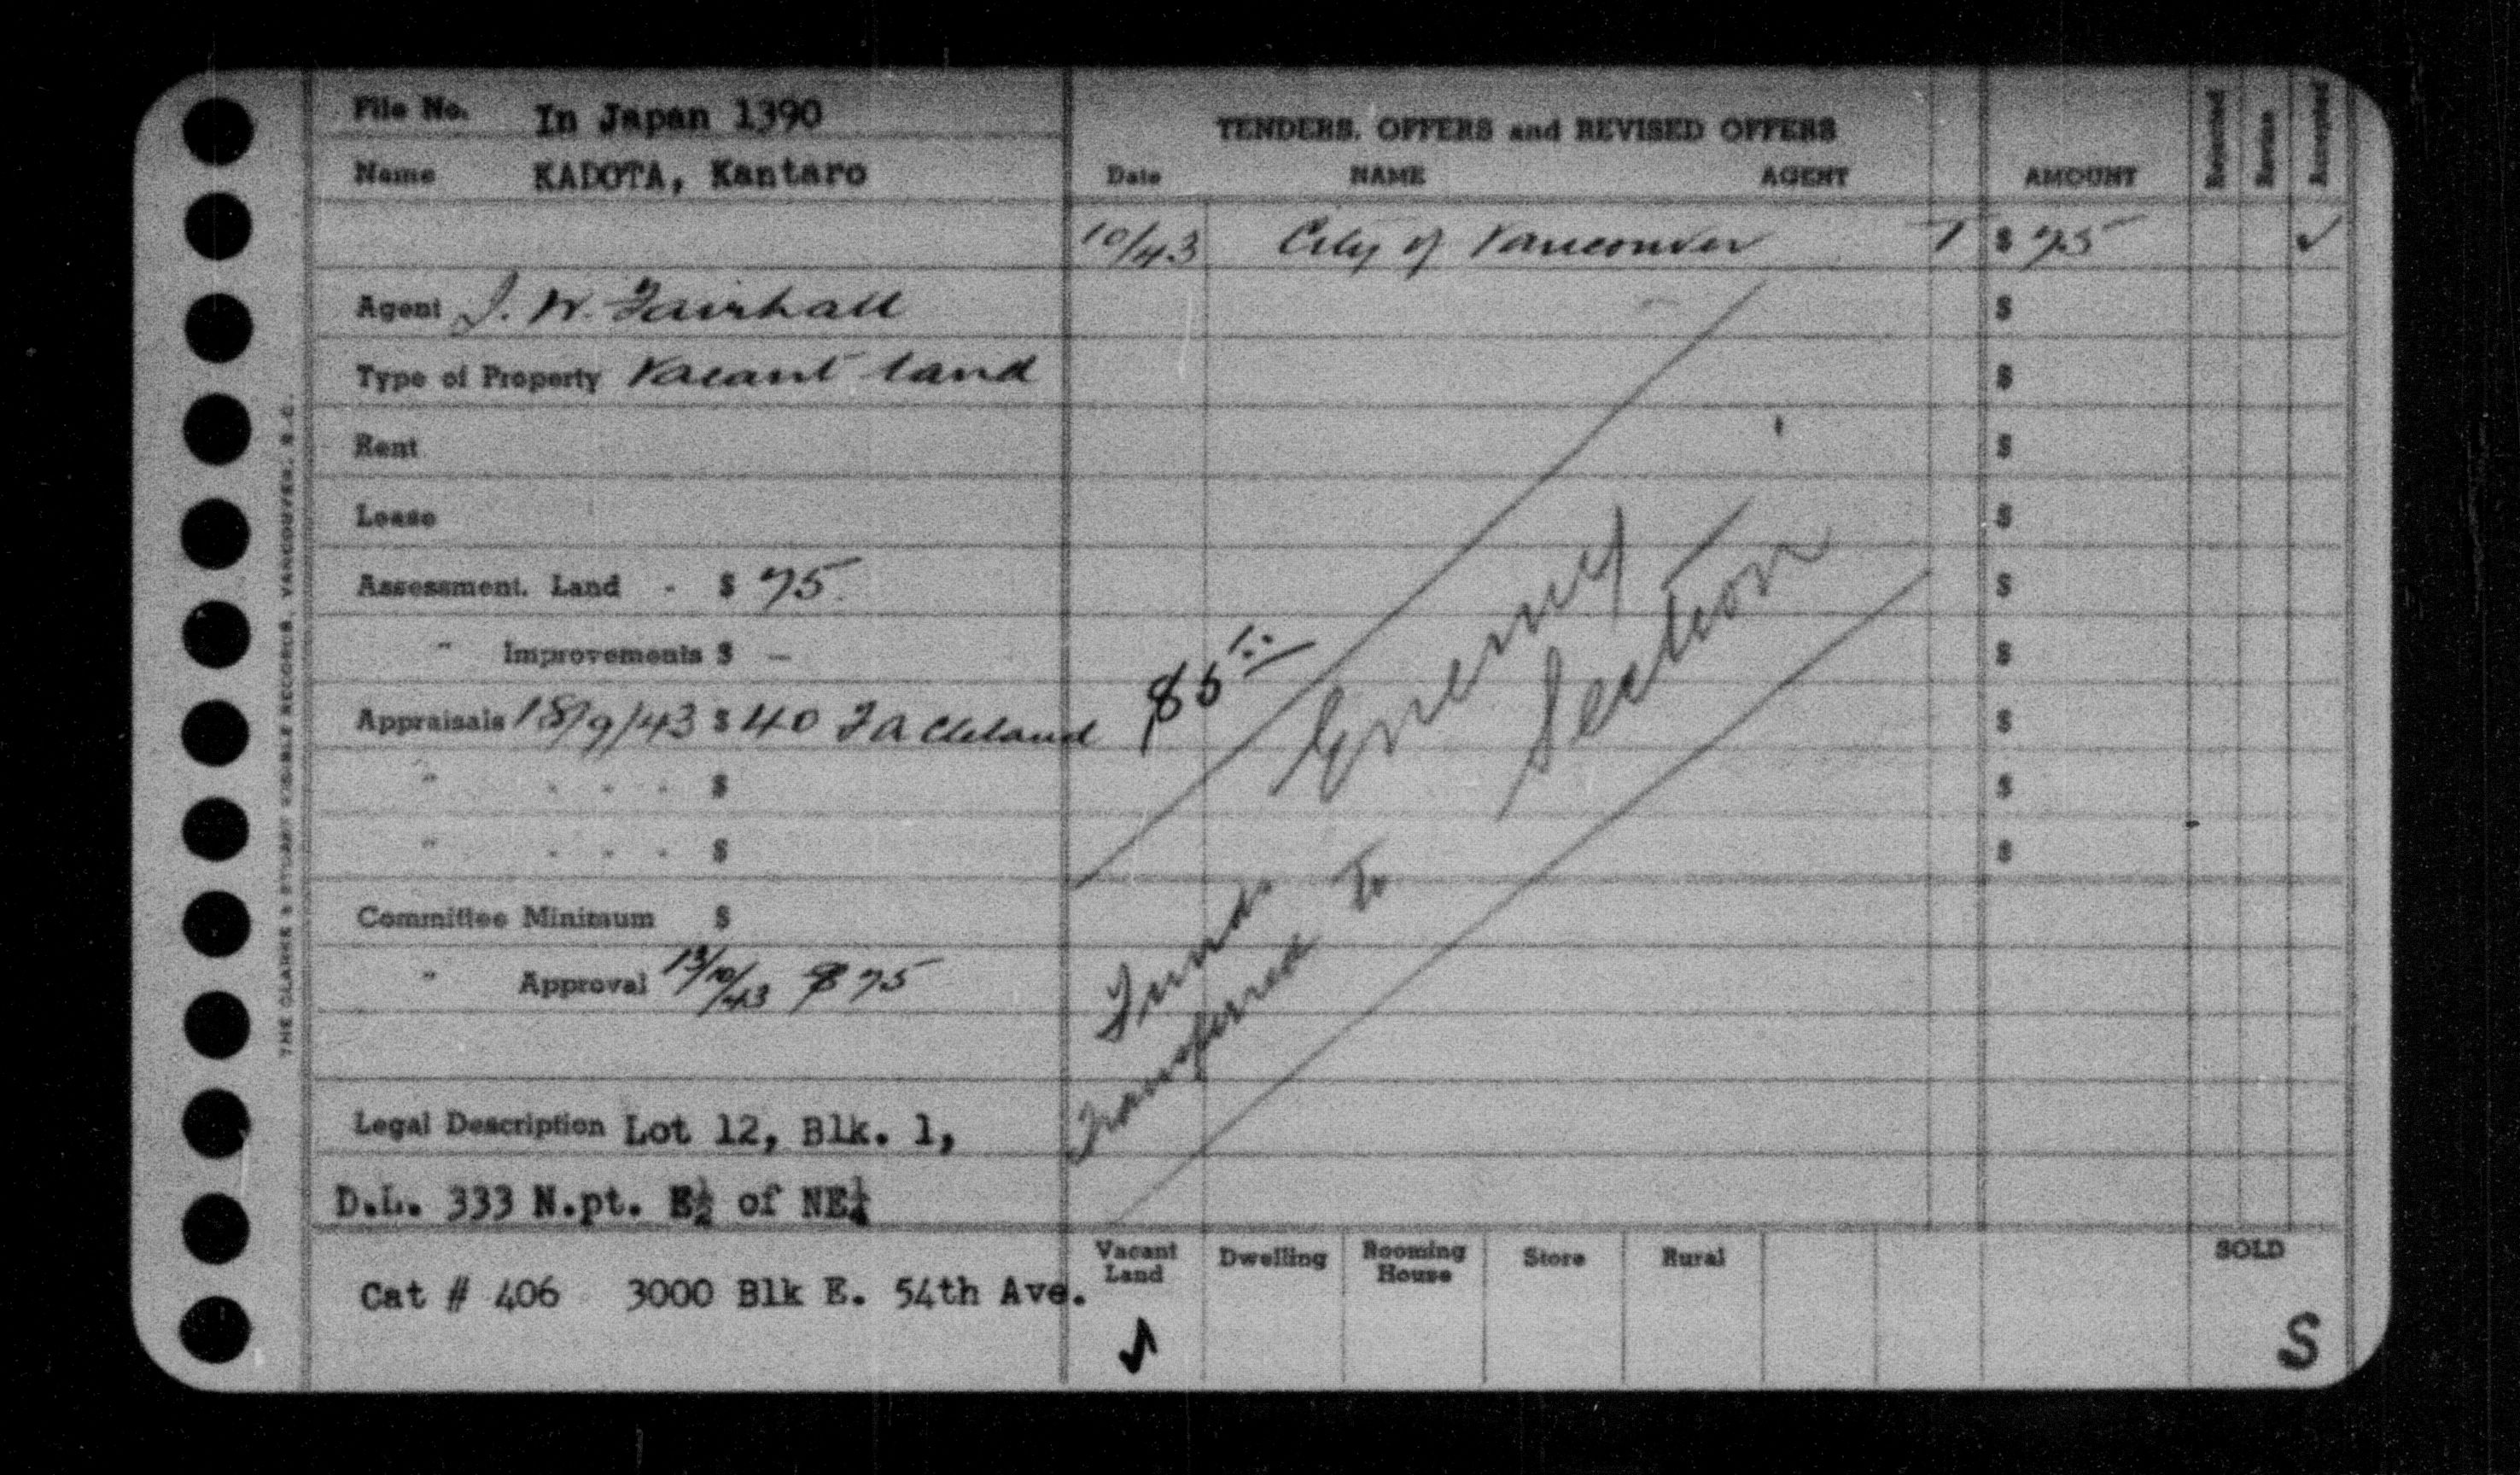 File No. In Japan 1390
Name KADOTA, Kantaro
Agent J. W. Fairhall
Type of Property Vacant land
Rent
Lease
Assessment. Land - $ 75.
" Improvements $ —
Appraisals 18/9/43 $ 40 J A Cleland
" . . . $
" . . . $
Committee Minimum $
" Approval 13/10/43 $75
Legal Description Lot 12, Blk. 1,
D.L. 333 N.pt. E½ of NE¼
Cat # 406 3000 Blk E. 54th Ave.
THE CLARKE & STUART VISIBLE RECORDS, VANCOUVER, B.C.
TENDERS, OFFERS and REVISED OFFERS
Date NAME AGENT AMOUNT Rejected Revise Accepted
10/43 City of Vancouver T $ 75 ✓
$
$
$
$
$
$
$
$
$
Funds
transferred to
Enemy
Section
Vacant Land Dwelling Rooming House Store Rural SOLD
✓ S